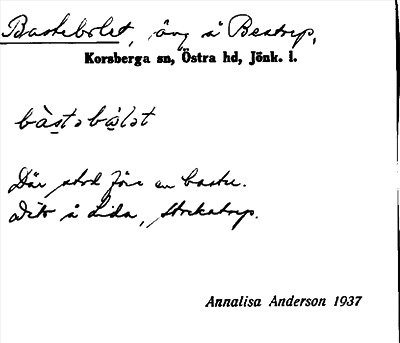 Bastebolet, äng å Bestorp,
Korsberga sn, Östra hd, Jönk. l.
bàstəbωlət
Där stod förr en bastu.
Dito å Lida, Stockatorp.
Annalisa Anderson 1937